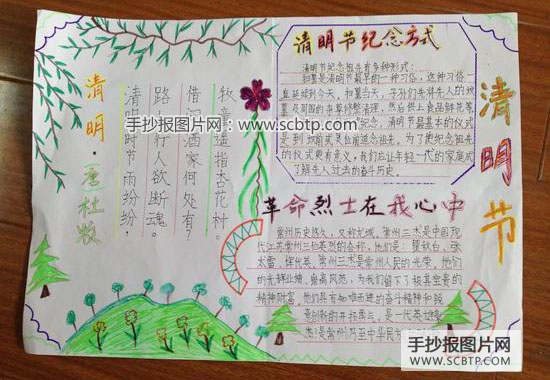 清明节
清明节纪念方式
清明节纪念祖先有多种形式：
扫墓是清明节最早的一种习俗，这种习俗一
直延续到今天，扫墓当天，子孙们先将先人的
及周围的杂草修整清理，然后供上食品鲜花等
纪念，清明节最基本的仪式
是到坟前
的仪式更有意义，我们应让年轻一代的家庭成
了解先人过去的奋斗历史。
清明·唐 杜牧
清明时节雨纷纷，
路上行人欲断魂。
借问酒家何处有？
牧童遥指杏花村。
手抄报图片网
www.scbtp.com
革命烈士在我心中
常州历史悠久，又称龙城，常州三杰是中国现
代江苏常州三位英烈的合称，他们是：瞿秋白、张
太雷、恽代英，常州三杰是常州人民的光荣，他们的
光辉业绩、崇高风范，为我们留下了极其宝贵的
精神财富，他们具有
手抄报图片网
www.SCBTP.com